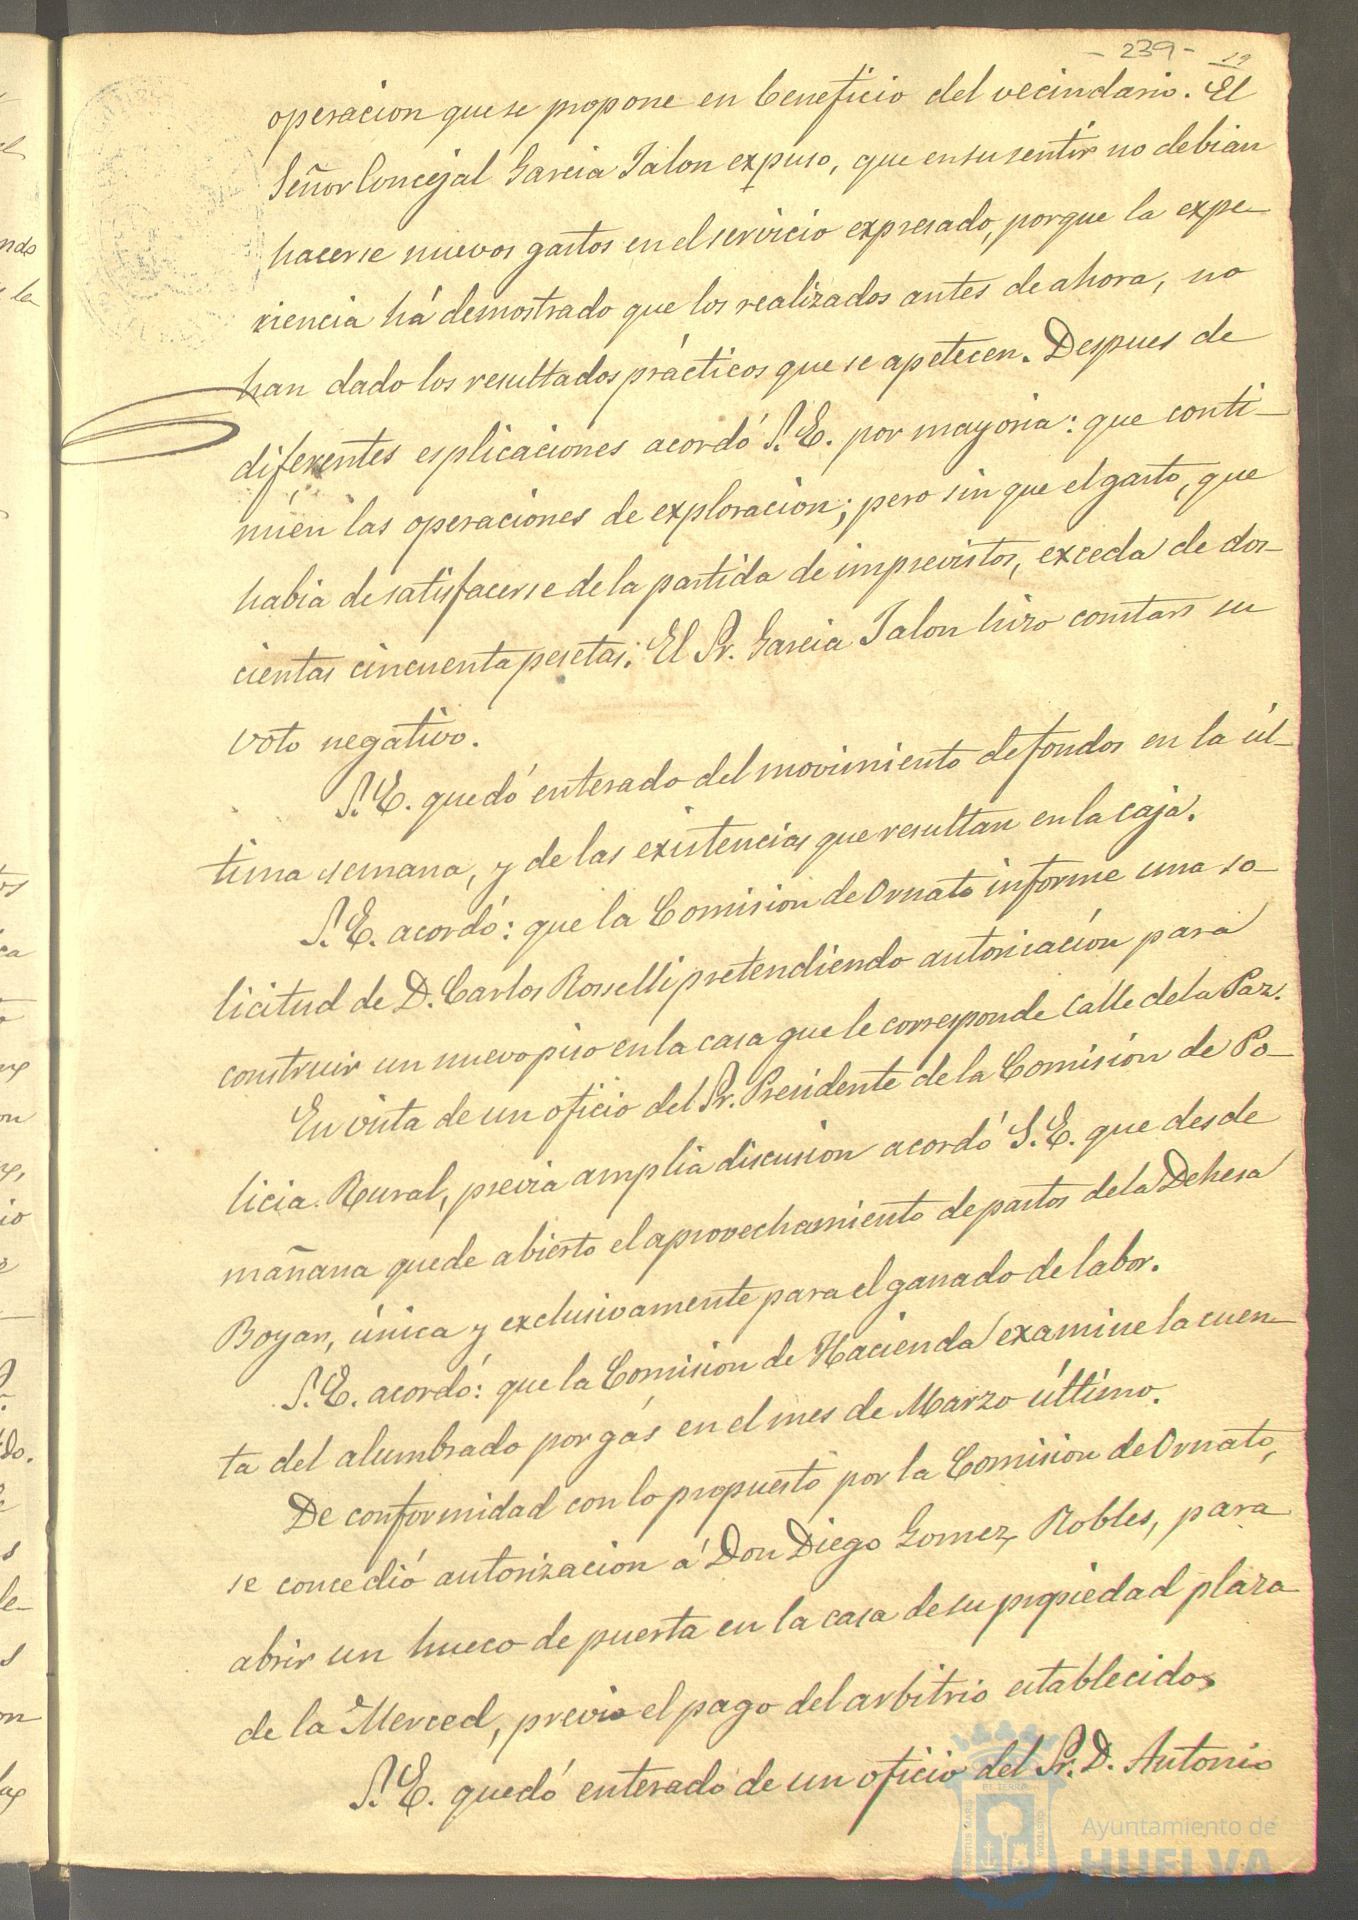 - 239 - 19
operacion que se propone en beneficio del vecindario. El
Señor Concejal Garcia Jalon expuso, que en su sentir no debian
hacerse nuevos gastos en el servicio expresado, porque la expe-
riencia há demostrado que los realizados antes de ahora, no
han dado los resultados prácticos que se apetecen. Despues de
diferentes esplicaciones acordó S. E. por mayoria: que conti-
núen las operaciones de exploracion; pero sin que el gasto, que
habia de satisfacerse de la partida de imprevistos, exceda de dos-
cientas cincuenta pesetas. El Sr. Garcia Jalon hizo constar su
voto negativo.
S. E. quedó enterado del movimiento de fondos en la úl-
tima semana, y de las existencias que resultan en la caja.
S. E. acordó: que la Comision de Ornato informe una so-
licitud de D. Carlos Rosselli pretendiendo autorización para
construir un nuevo piso en la casa que le corresponde calle de la Paz.
En vista de un oficio del Sr. Presidente de la Comisión de Po-
licia Rural, previa amplia discusion acordó S. E. que desde
mañana quede abierto el aprovechamiento de pastos de la Dehesa
Boyar, única y exclusivamente para el ganado de labor.
S. E. acordó: que la Comision de Hacienda examine la cuen-
ta del alumbrado por gás en el mes de Marzo último.
De conformidad con lo propuesto por la Comision de Ornato,
se concedió autorizacion á Don Diego Gomez Robles, para
abrir un hueco de puerta en la casa de su propiedad plaza
de la Merced, previo el pago del arbitrio establecido.
S. E. quedó enterado de un oficio del Sr. D. Antonio
Ayuntamiento de
HUELVA